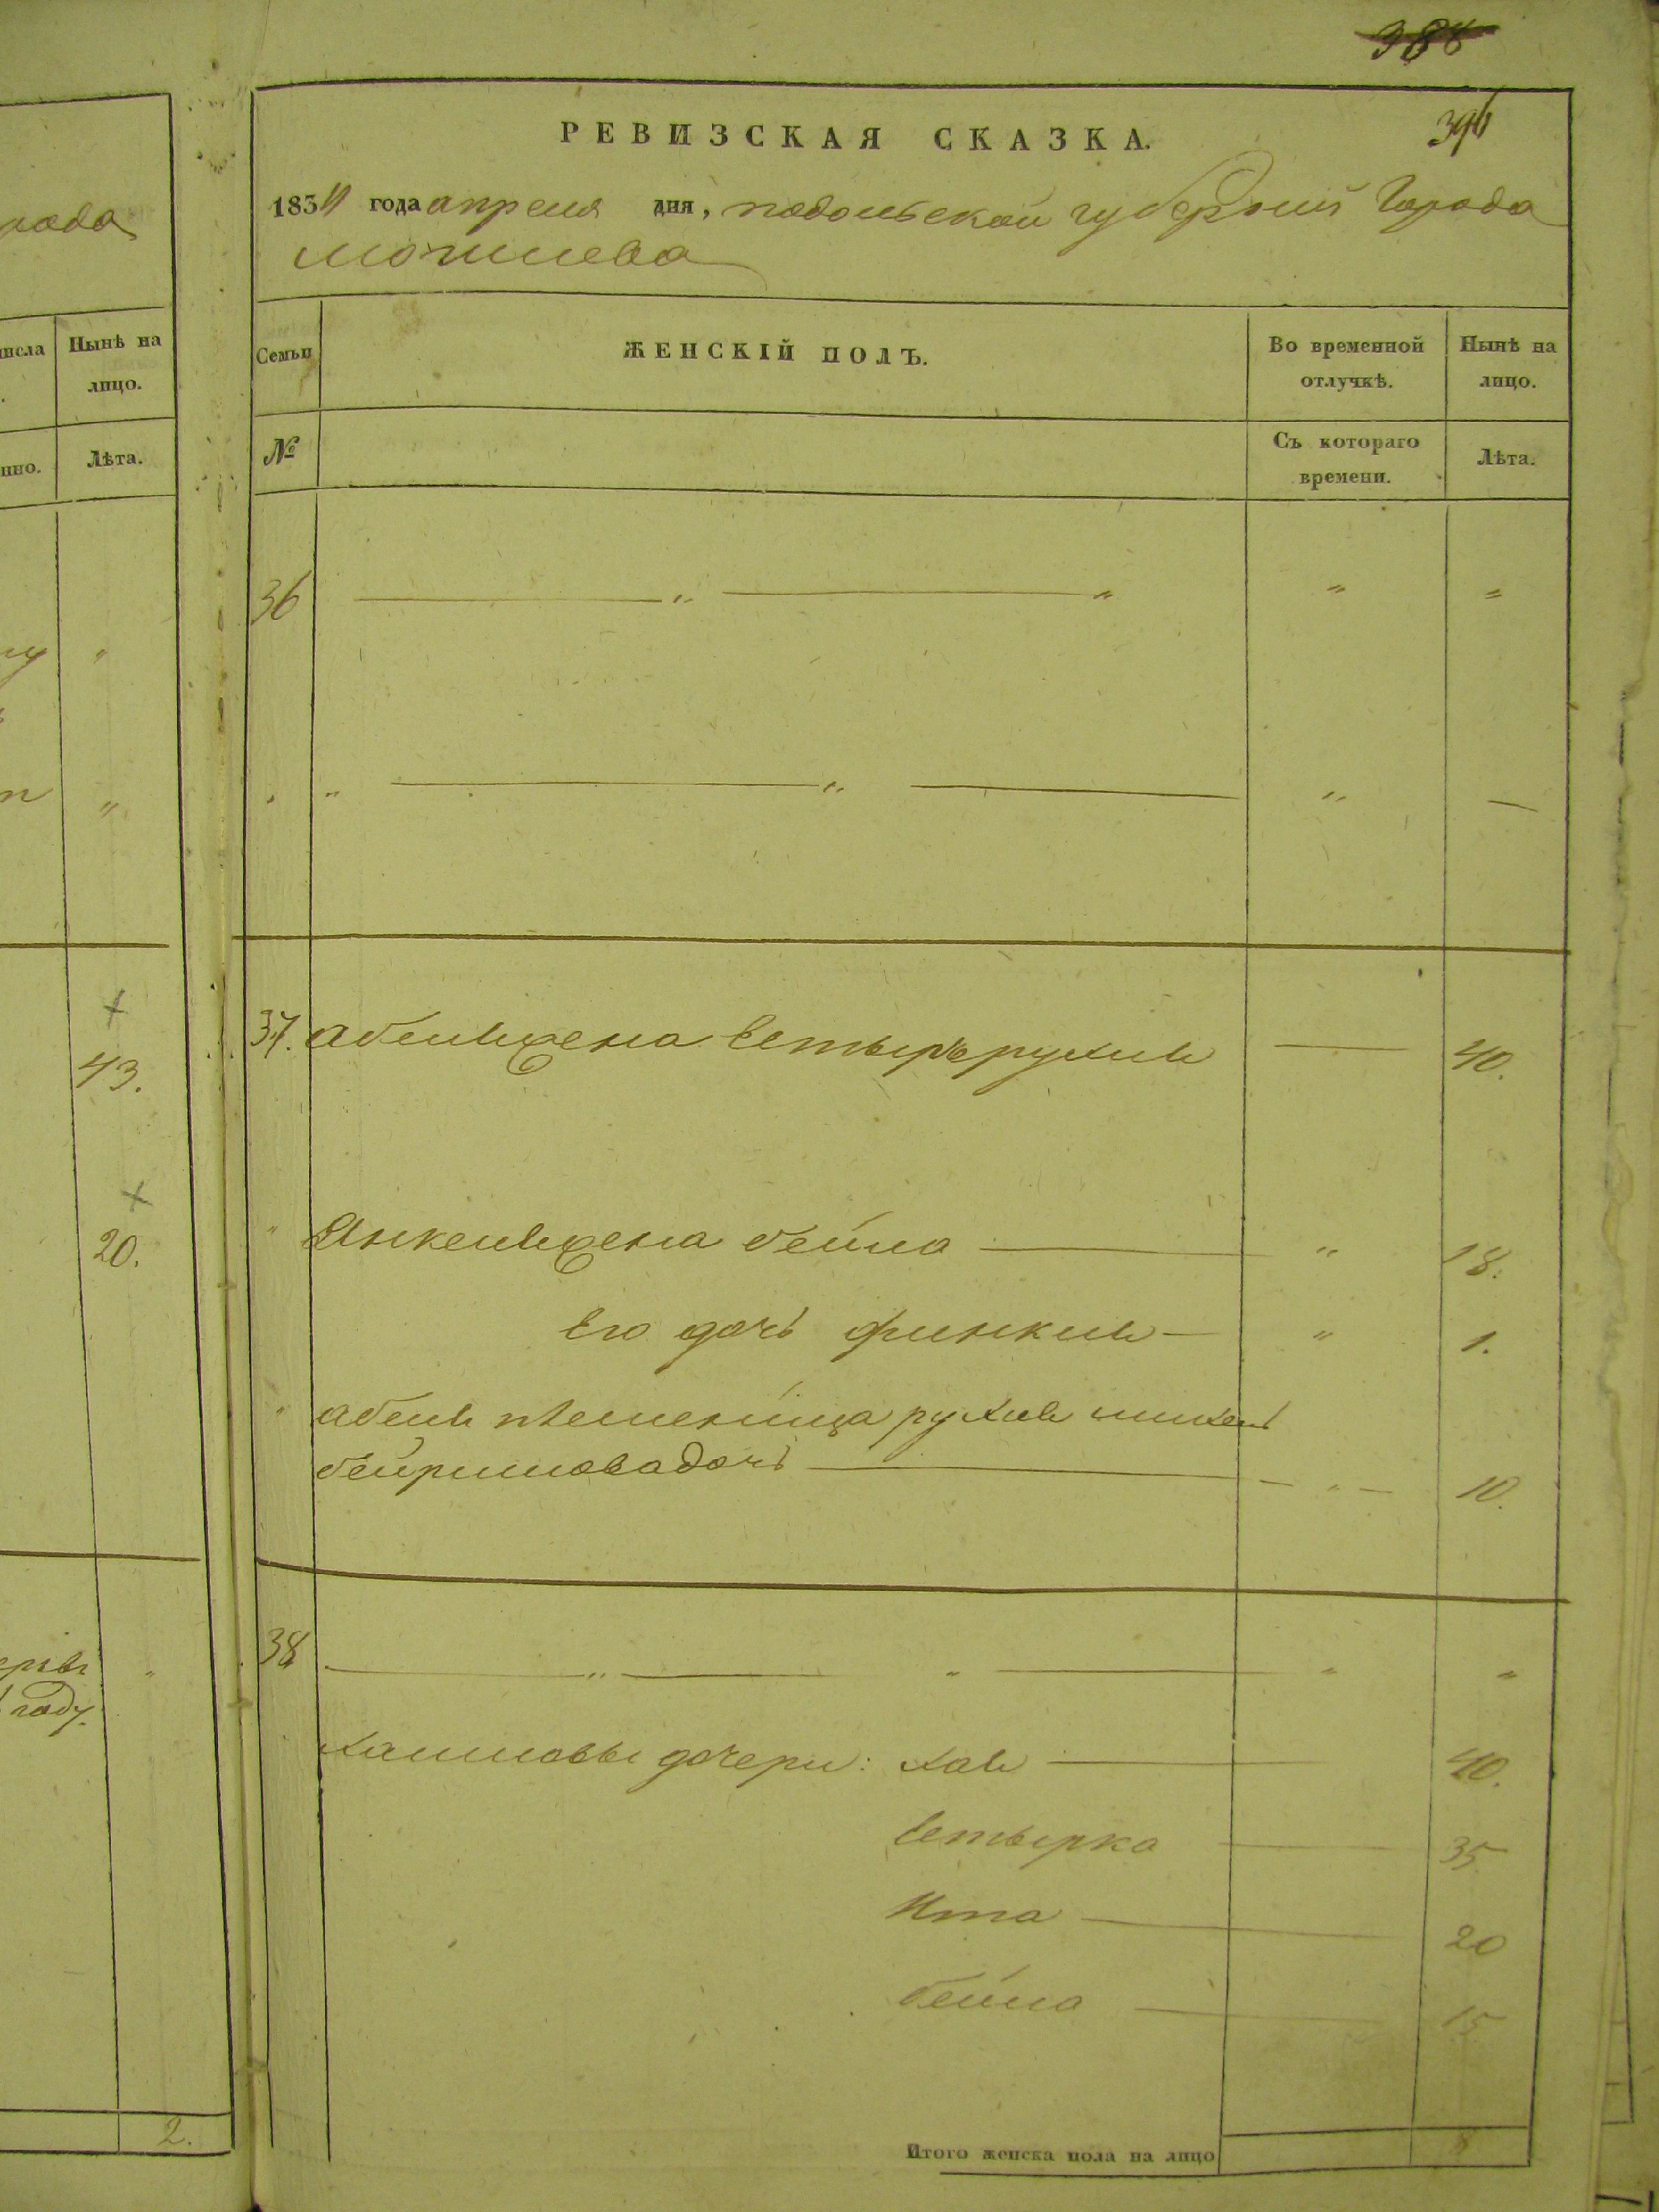 388
396
РЕВИЗСКАЯ СКАЗКА.
1834 года апреля дня, подольской губерний Города
могилева
Семьи
ЖЕНСКІЙ ПОЛЪ.
Во временной отлучкѣ.
Нынѣ на лицо.
№
Съ котораго времени.
Лѣта.
36
37. абель жена Естыръ рухль 40.
Янкель жена бейла 18.
Его дочь финкиль 1.
абель племенница рухль
бейришова дочь 10.
38
дочери: хав 40.
Естырка 35
Ита 20
бейла 15
Итого женска пола на лицо 8
рода
исла
Нынѣ на лицо.
нно.
Лѣта.
43.
20.
году.
2.